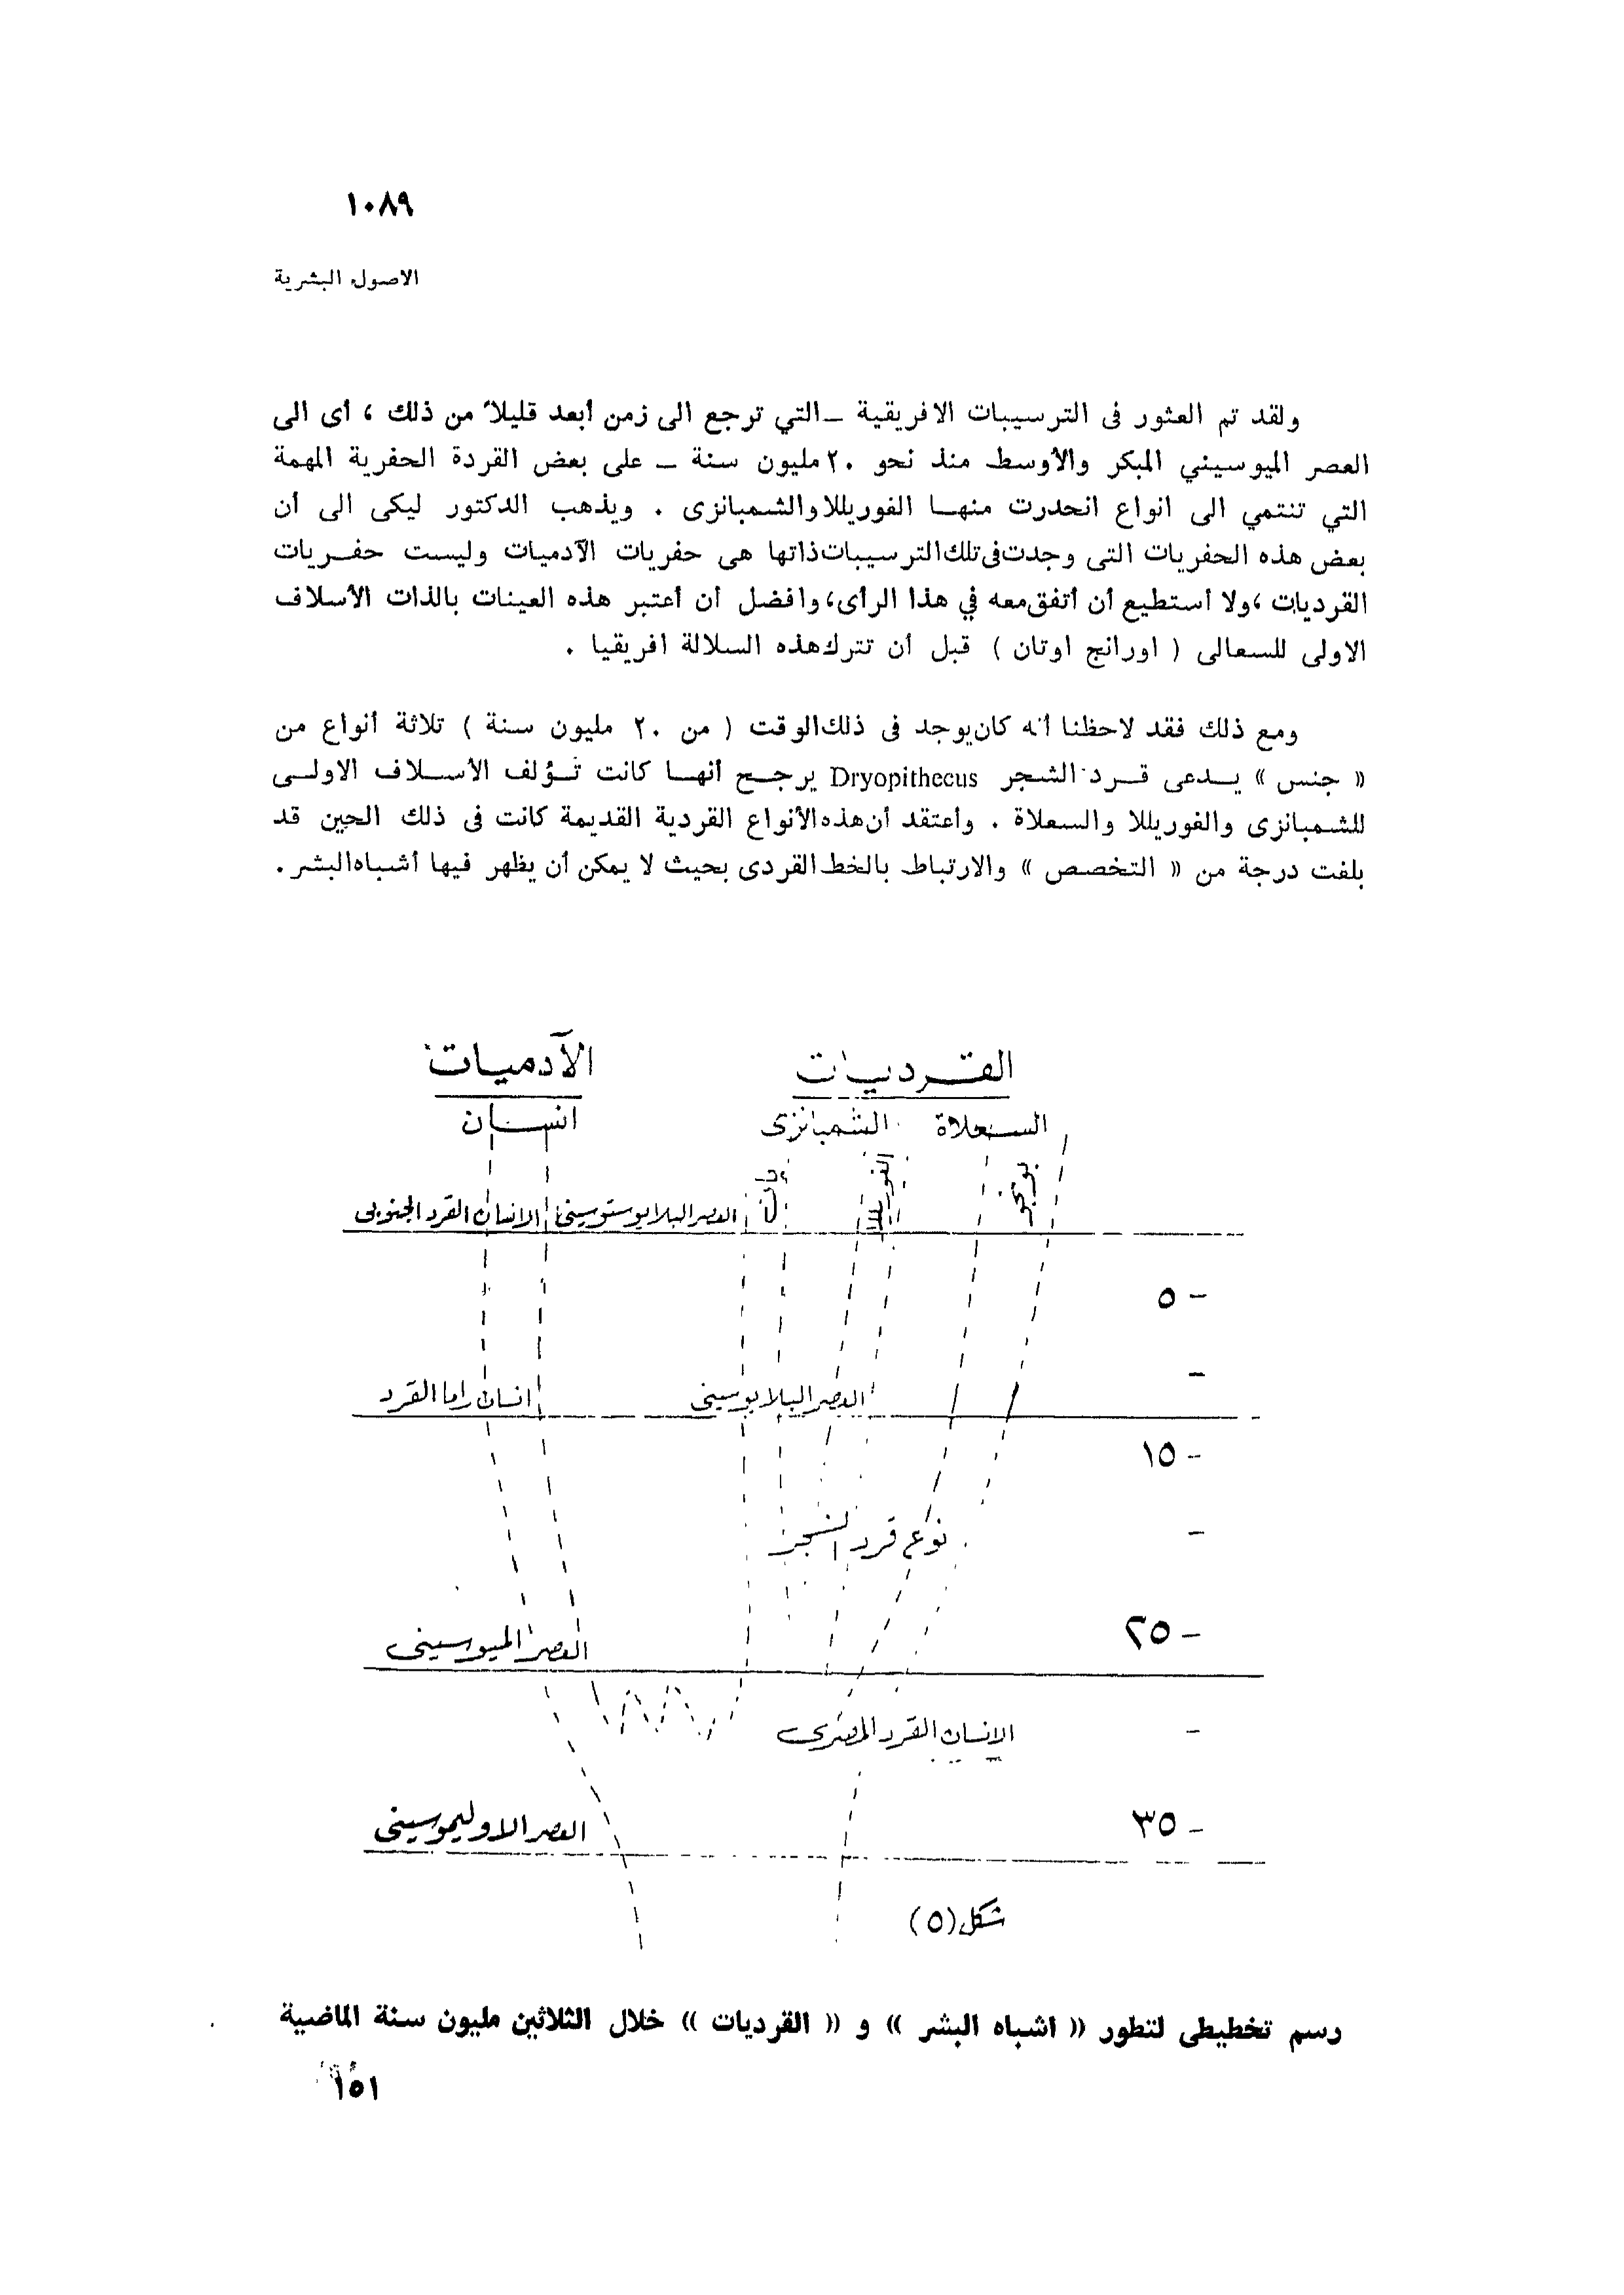 ١٠٨٩
الاصول البشرية
ولقد تم العثور فى الترسيبات الافريقية ــ التي ترجع الى زمن أبعد قليلا ً من ذلك ، أى الى
العصر الميوسيني المبكر والأوسط منذ نحو ٢٠ مليون سنة ــ على بعض القردة الحفرية المهمة
التي تنتمي الى انواع انحدرت منهـا الغوريللا والشمبانزى . ويذهب الدكتور ليكى الى أن
بعض هذه الحفريات التى وجدت فى تلك الترسيبات ذاتها هى حفريات الآدميات وليست حفـريات
القرديات ، ولا أستطيع أن أتفق معه في هذا الرأى، وافضل أن أعتبر هذه العينات بالذات الأسلاف
الاولى للسعالى ( اورانج اوتان ) قبل أن تترك هذه السلالة افريقيا .
ومع ذلك فقد لاحظنا أنه كان يوجد فى ذلك الوقت ( من ٢٠ مليون سنة ) ثلاثة أنواع من
« جنس » يـدعى قـرد الشجر Dryopithecus يرجـح أنهـا كانت تـؤلف الأسـلاف الاولـى
للشمبانزى والغوريللا والسعلاة . وأعتقد أن هذه الأنواع القردية القديمة كانت فى ذلك الحين قد
بلغت درجة من « التخصص » والارتباط بالخط القردى بحيث لا يمكن أن يظهر فيها أشباه البشر .
القـرديات
الآدميات
السعلاة
الشمبانزى
انسـان
بونجو
الغوريللا
بان
العصر البلايوستوسينى
الانسان القرد الجنوبى
- ٥
-
العصر البلايوسينى
انسان راما القرد
- ١٥
نوع قرد الشجر
-
- ٢٥
العصر الميوسينى
الانسان القرد المصرى
-
- ٣٥
العصر الاوليموسينى
شكل (٥)
رسم تخطيطى لتطور « اشباه البشر » و « القرديات » خلال الثلاثين مليون سنة الماضية
١٥١